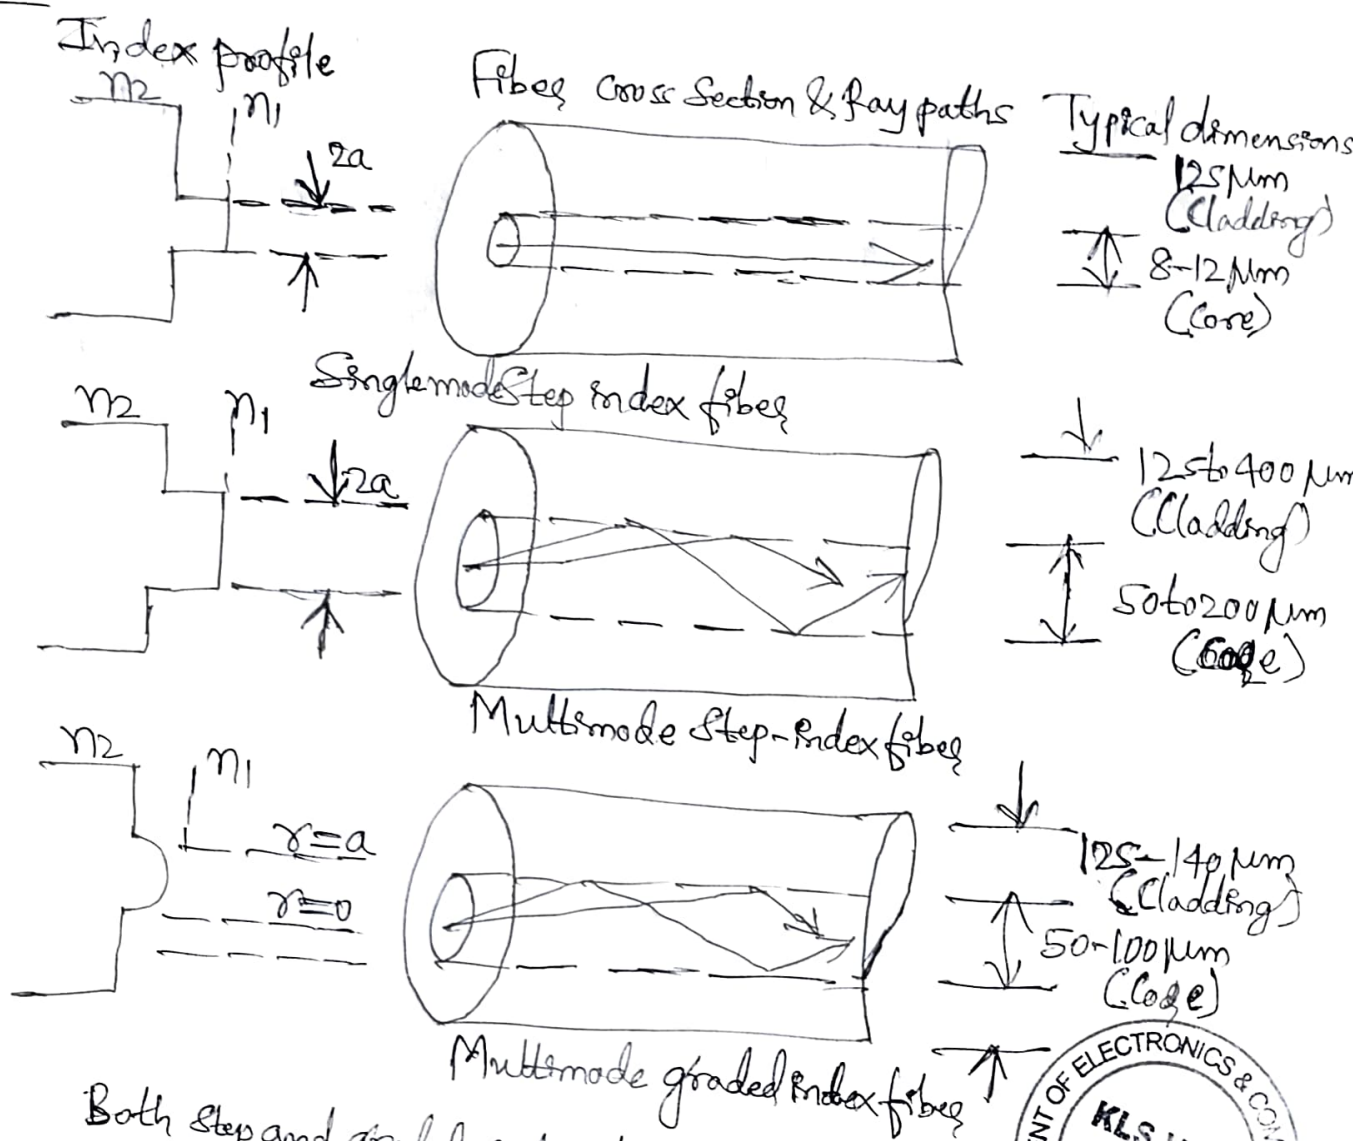 Index profile
Fiber Cross Section & Ray paths
Typical dimensions
n2
n1
2a
125 μm
(Cladding)
8-12 μm
(Core)
Singlemode Step index fiber
n2
n1
2a
125 to 400 μm
(Cladding)
50 to 200 μm
(Core)
Multimode Step-index fiber
n2
n1
r=a
r=0
125-140 μm
(Cladding)
50-100 μm
(Core)
Multimode graded index fiber
NT OF ELECTRONICS & COM
KLS
Both Step and